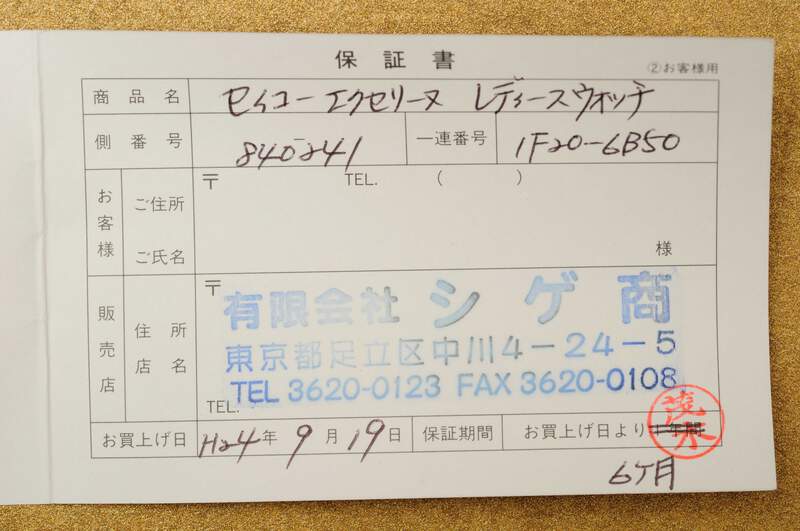 保証書
②お客様用
商品名 セイコーエクセリーヌ レディースウォッチ
側番号 840241 一連番号 1F20-6B50
お客様 ご住所 〒 TEL. ( )
ご氏名 様
販売店 住所 店名 〒
有限会社 シゲ商
東京都足立区中川4-24-5
TEL 3620-0123 FAX 3620-0108
TEL.
お買上げ日 H24年9月19日 保証期間 お買上げ日より1年間
6ヶ月